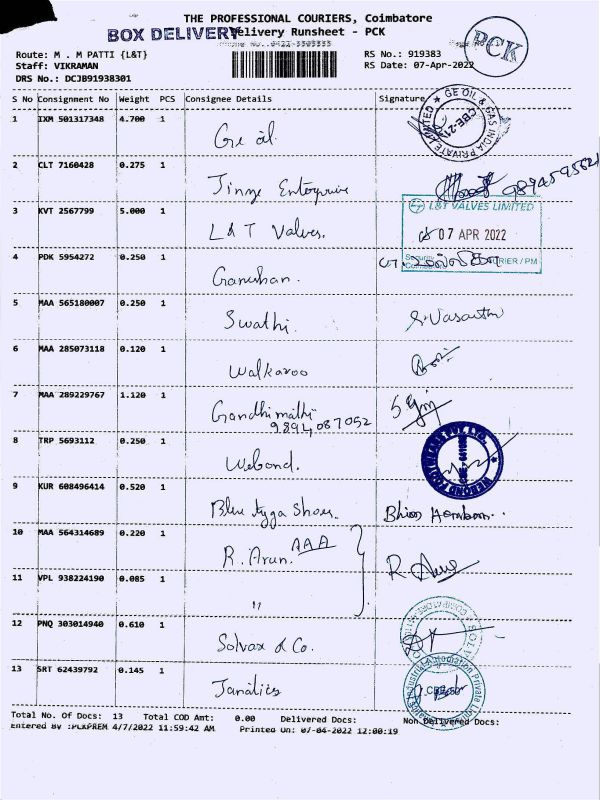 THE PROFESSIONAL COURIERS, Coimbatore
BOX DELIVERY Delivery Runsheet - PCK
PCK
Route: M . M PATTI {L&T}
RS No.: 919383
Staff: VIKRAMAN
RS Date: 07-Apr-2022
DRS No.: DCJB91938301
S No Consignment No Weight PCS Consignee Details Signature
1 IXM 501317348 4.700 1 Ge oil
GE OIL & GAS INDIA PRIVATE LIMITED CBE-21
2 CLT 7160428 0.275 1 Jinye Enterprise
3 KVT 2567799 5.000 1 L & T Valves.
L&T VALVES LIMITED
07 APR 2022
4 PDK 5954272 0.250 1 Ganeshan.
5 MAA 565180007 0.250 1 Swathi. S. Vasanthi
6 MAA 285073118 0.120 1 Walkaroo
7 MAA 289229767 1.120 1 Gandhimathi
9894087052
8 TRP 5693112 0.250 1 Webond.
9 KUR 608496414 0.520 1 Blue tyga Shoes.
10 MAA 564314689 0.220 1 R. Arun. AAA
R Arun
11 VPL 938224190 0.085 1 "
12 PNQ 303014940 0.610 1 Solvax & Co.
13 SRT 62439792 0.145 1 Janatics
Total No. Of Docs: 13 Total COD Amt: 0.00 Delivered Docs: Non Delivered Docs:
Entered By :PLXPREM 4/7/2022 11:59:42 AM Printed On: 07-04-2022 12:00:19